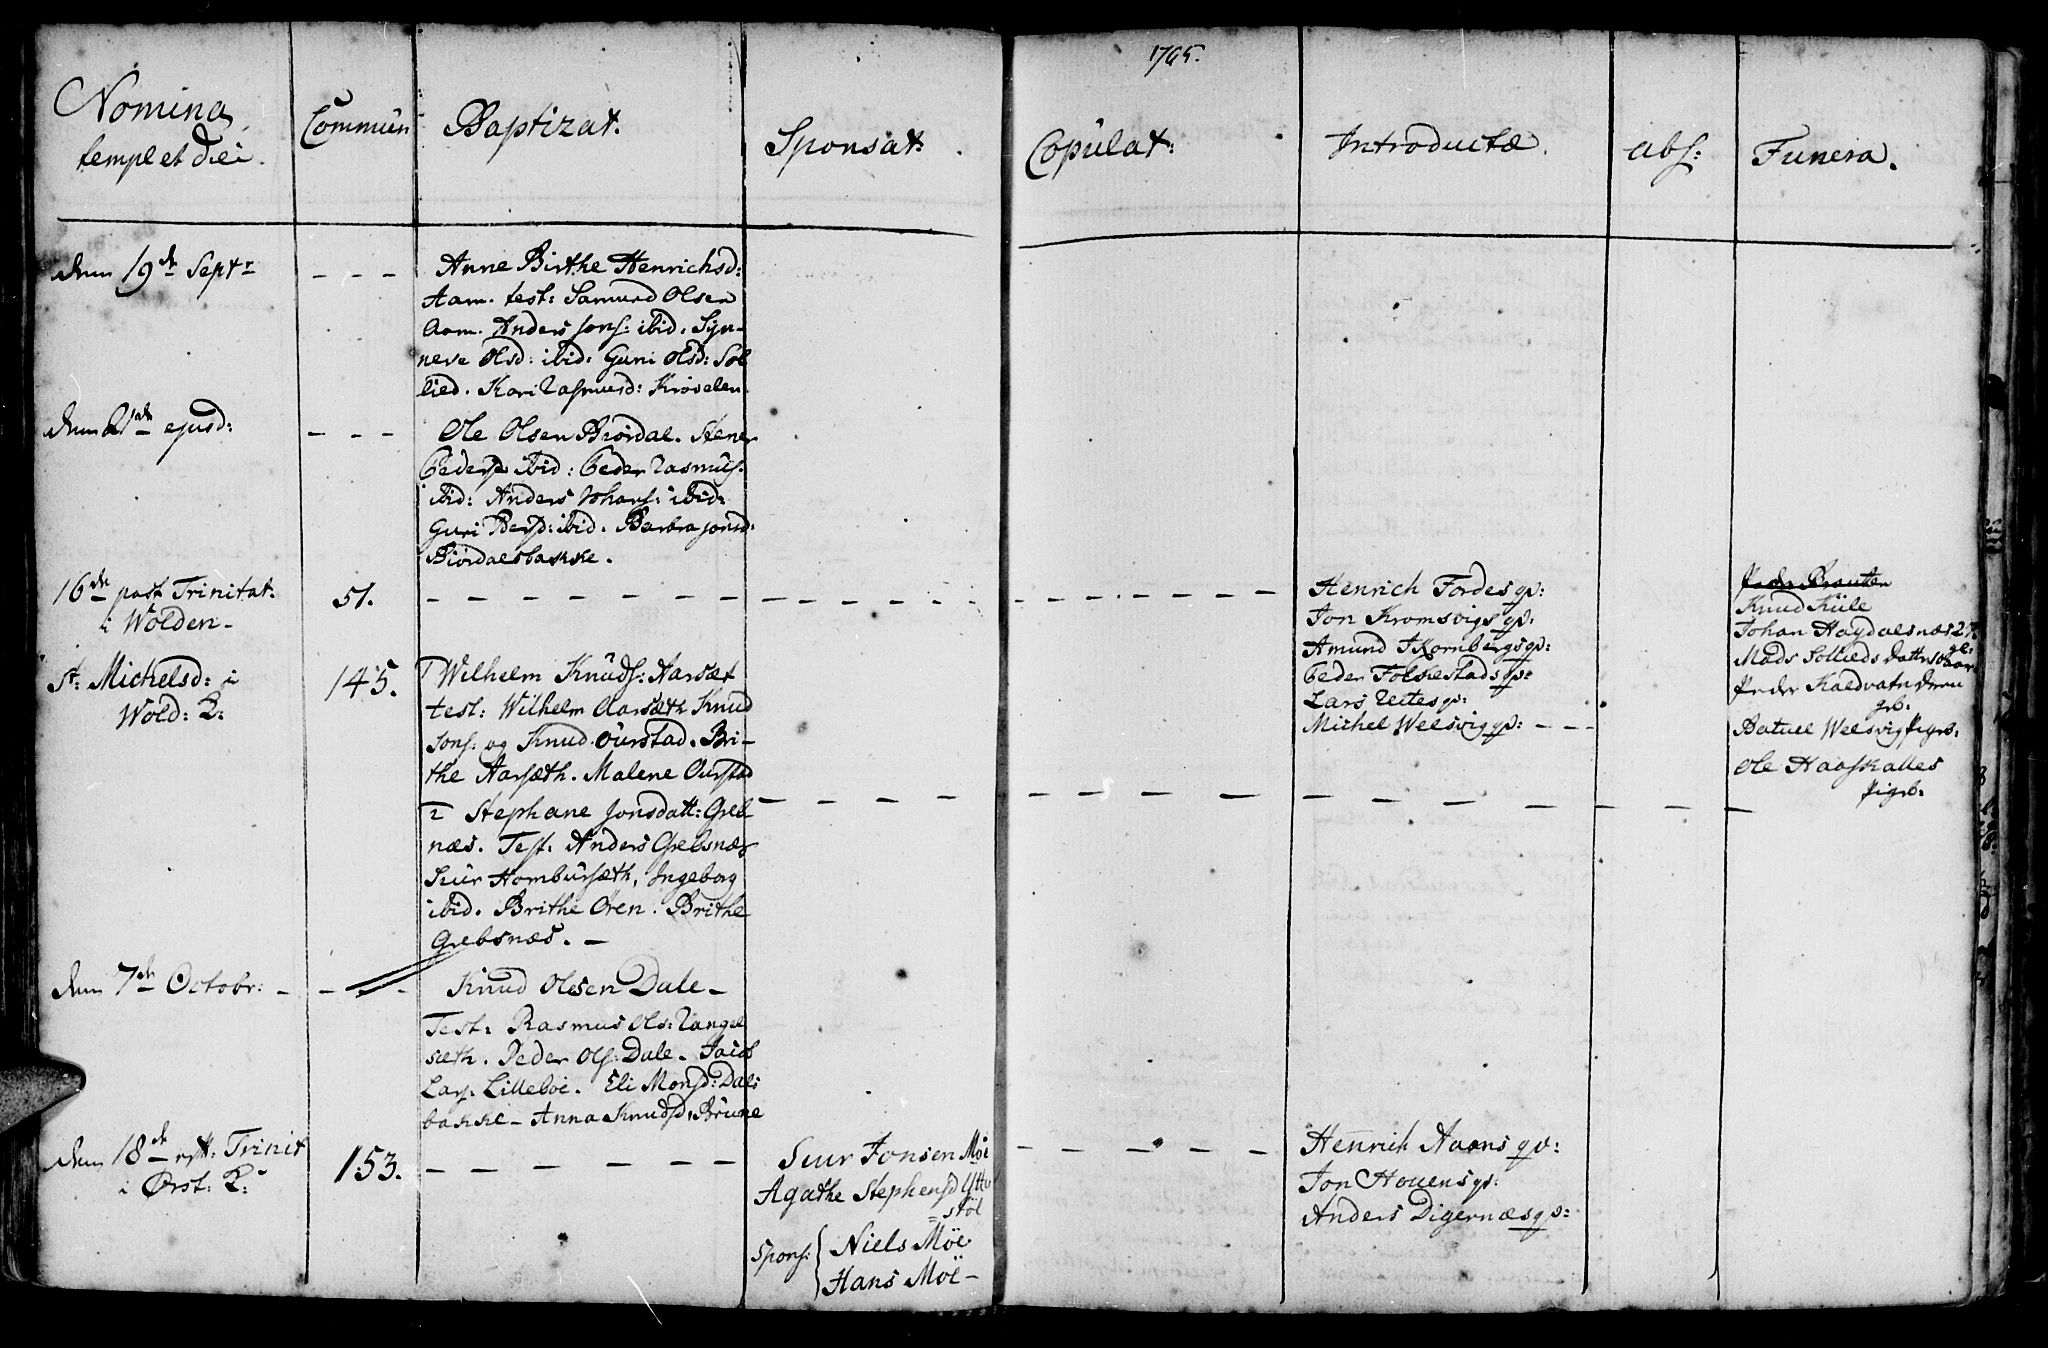 1765.
Nomina
templ et diei.
Commun
Baptizat.
Sponsat:
Copulat:
Introductæ.
abs:
Funera.
den 19de Septr
Anne Birthe Henrichsd:
Aam. test: Samund Olsen
Aam. Anders Jons: ibid. Syn-
neve Olsd: ibid: Guri Olsd: Sol
lied. Kari Rasmusd: Krøvelen.
den 21de ejusd:
Ole Olsen Biørdal. Stener
Peders ibid: Peder Rasmus.
ibid: Anders Johans: ibid:
Guri ibid. Barbra Jonsd:
Biørdalsbakke.
16de post Trinitat.
i Wolden-
51.
Henrich Fordes qv:
Jon Kromsvigs qv:
Amund Skornbergs qv:
Peder Folkestads qv:
Lars Reites qv:
Michel Welsvig qv:
Peder Brauten
Knud Kiile
Johan Haydalsnæs
Mads Sollieds
Peder Kaldvatn
Batuel Welsvig Pigeb:
Ole Haaskalles
Pigeb:
St. Michelsd: i
Wold: K:
145.
1 Wilhelm Knuds: Aarsæt
test: Wilhelm Aarsæth Knud
Jons: og Knud Ourstad. Bri-
the Aarsæth. Malene Ourstad
2 Stephane Jonsdatt: Greb
næs. Test: Anders Grebsnæs
Siur Hombursæth, Ingeborg
ibid. Brithe Øren. Brithe
Grebsnæs. -
den 7de Octobr:
Knud Olesen Dale-
Test: Rasmus Ols: Rangel
sæth. Peder Ols: Dale. Jacob
Lars. Lillebøe. Eli Monsd: Dals
bakke- Anna Knudsd: Brune
den 18de Trinit
i Ørst: K:
153.
Siur Jonsen Møe
Agathe Stephensd Ytre
=støl
Spons: { Niels Møe
Hans Møe-
Henrich Aams qv:
Jon Hovens qv:
Anders Digernæs qv: